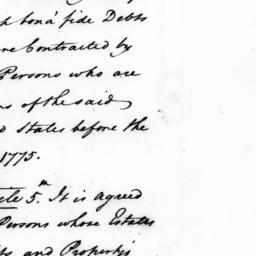 bona fide Debts
Contracted by
Persons who are
of the said
States before the
1775.
5.th It is agreed
Persons whose Estates
and Property's